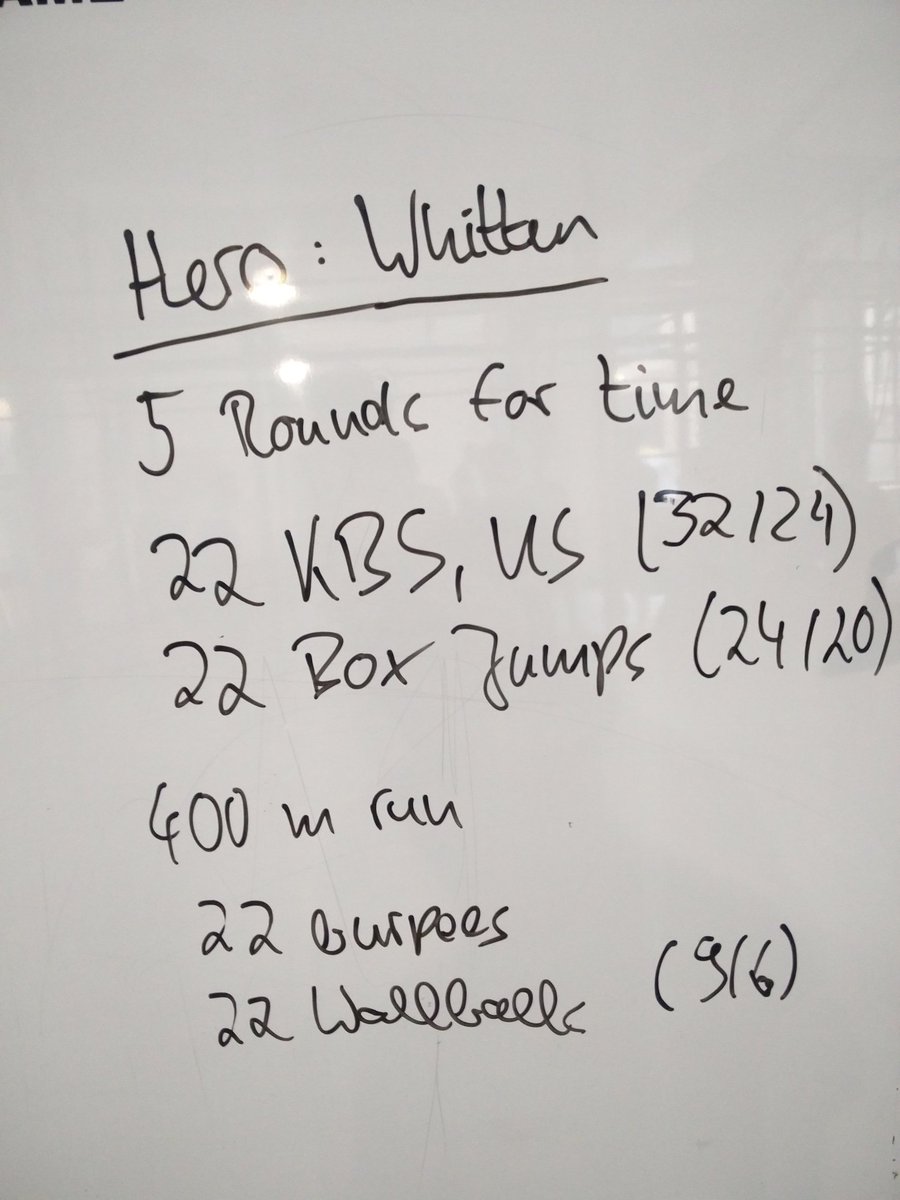 Hero: Whitten
5 Rounds for time
22 KBS, US (32/24)
22 Box Jumps (24/20)
400 m run
22 burpees
22 Wallballs (9/6)